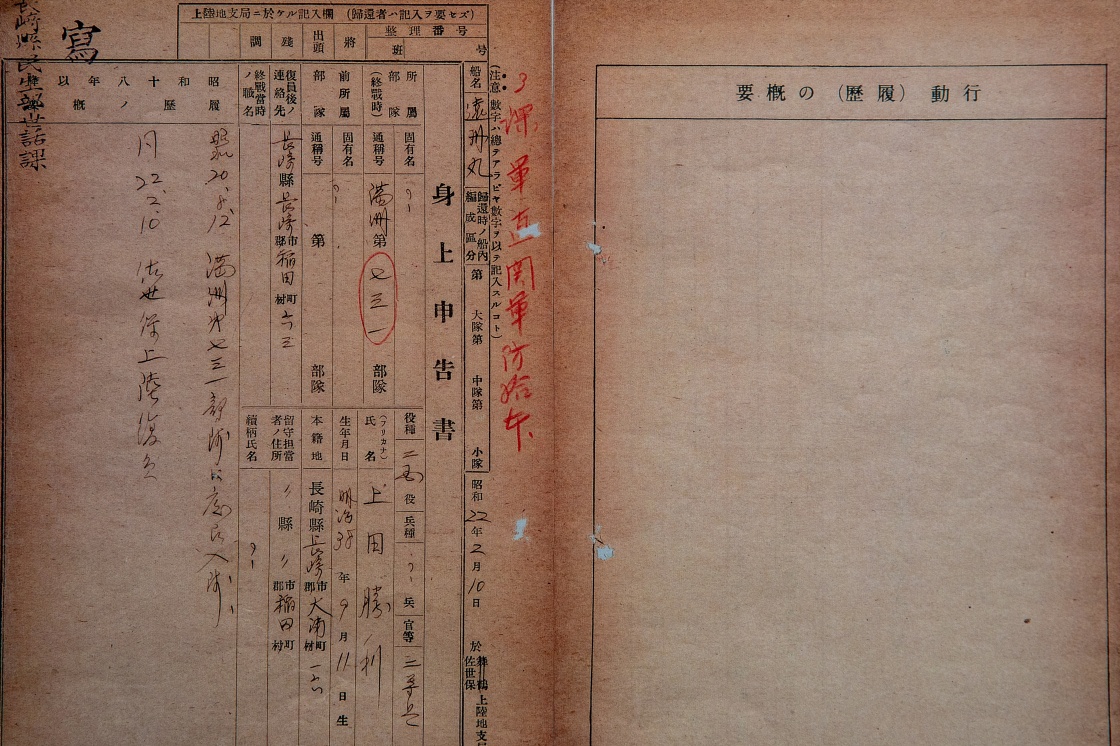 行動（履歴）の概要
3
関軍防給本
（注意 数字ハ總テアラビヤ數字ヲ以テ記入スルコト）
上陸地支局ニ於ケル記入欄　（歸還者ハ記入ヲ要セズ）
整理番号
班　号
將
出頭
殘
調
船名 遠州丸
歸還時ノ船内編成區分 第 大隊第 中隊第 小隊
昭和22年2月10日
於 舞鶴 佐世保 上陸地支局
身上申告書
所屬部隊（終戰時）
固有名
通稱号 満洲第七三一部隊
前所屬部隊
固有名
通稱号 第 部隊
復員後ノ連絡先 長崎縣長崎市郡稲田町村六三
終戰當時ノ職名
役種 役
兵種 兵
官等 二等兵
（フリカナ）氏名 上田勝利
生年月日 明治38年9月11日生
本籍地 長崎縣長崎市郡大浦町村
留守担當者ノ住所 〃縣〃市郡稲田町村
續柄氏名
昭和十八年以
履歴ノ概
昭20.8.12 満洲第七三一部隊ニ應召入隊
22.2.10 佐世保上陸復員
寫
長崎縣民生部世話課